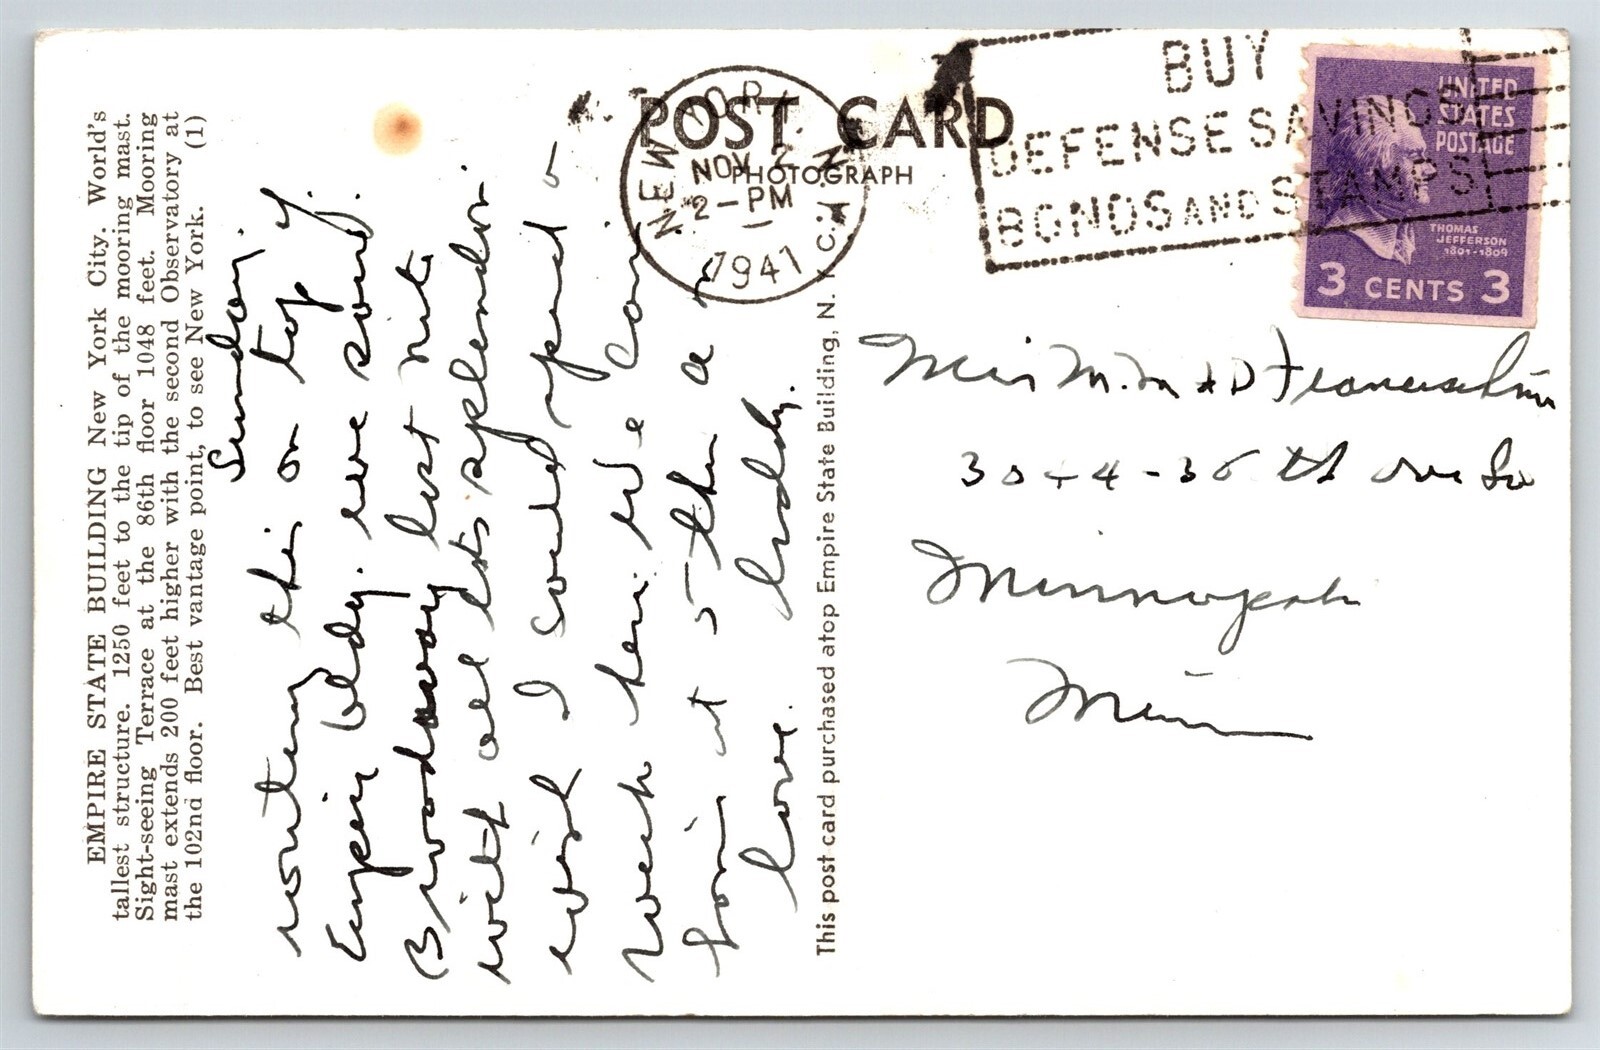 EMPIRE STATE BUILDING New York City. World's
tallest structure. 1250 feet to the tip of the mooring mast.
Sight-seeing Terrace at the 86th floor 1048 feet. Mooring
mast extends 200 feet higher with the second Observatory at
the 102nd floor. Best vantage point, to see New York. (1)
Sunday.
writing this on top of
Empire Bldg. we saw
Broadway last nite
with all its splendor
wish I could spend a
week here. We
at 5 then a
love. Buddy.
This post card purchased atop Empire State Building, N. Y. C.
POST CARD
PHOTOGRAPH
NEW YORK, N.Y.
NOV 2
2-PM
1941
BUY
DEFENSE SAVINGS
BONDS AND STAMPS
UNITED
STATES
POSTAGE
THOMAS
JEFFERSON
1801-1809
3 CENTS 3
M. M & D
36th Ave So
Minneapolis
Minn